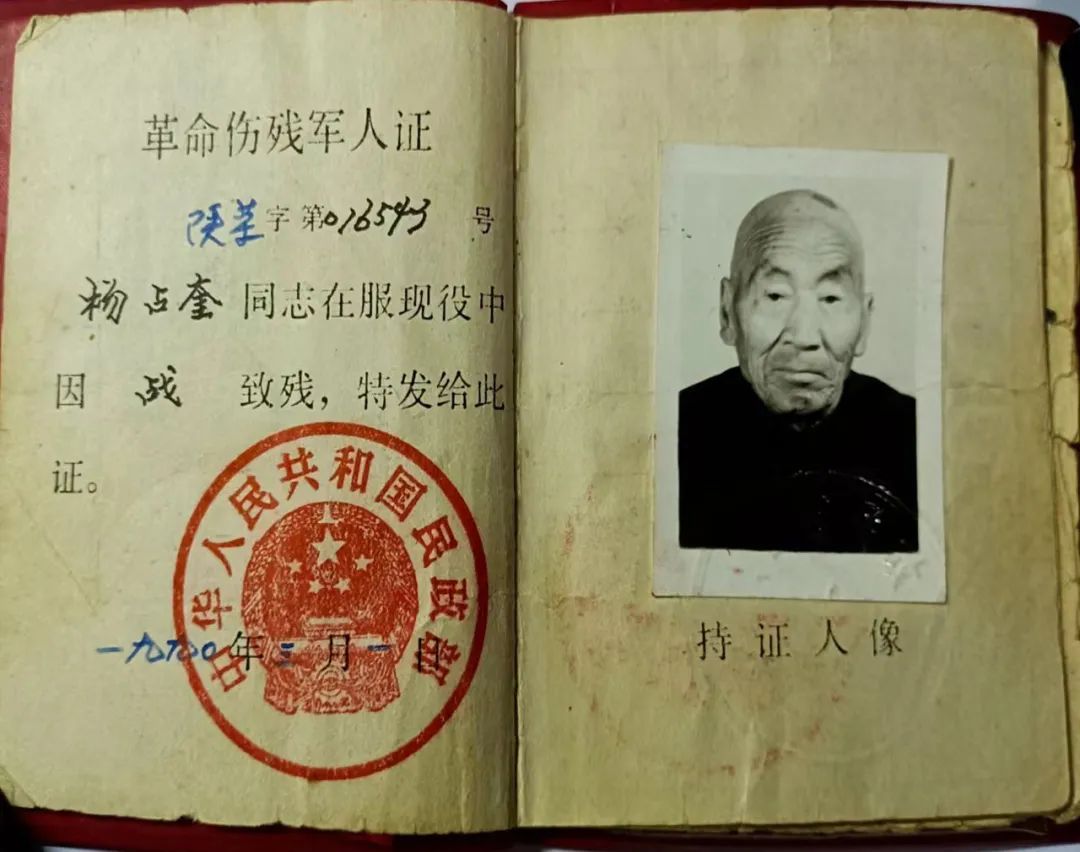 革命伤残军人证
陕字第016543号
杨占奎同志在服现役中
因战致残，特发给此
证。
中华人民共和国民政部
一九九〇年三月一日
持证人像